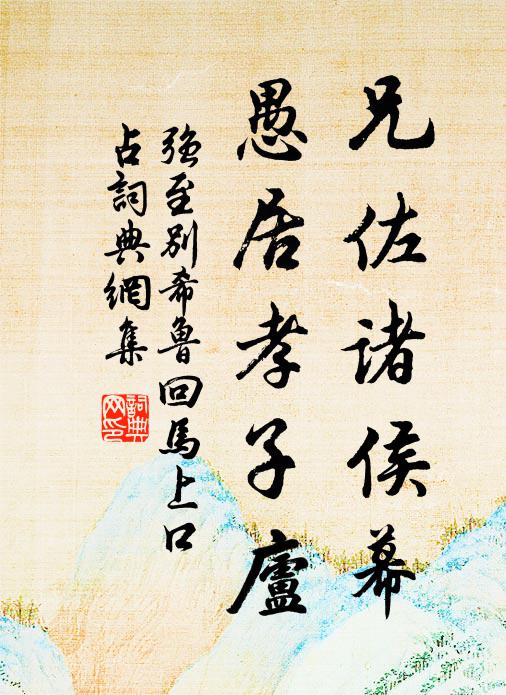 兄佐諸侯幕
愚居孝子廬
强至別希魯回馬上口
占詞典網集
詞典
网印